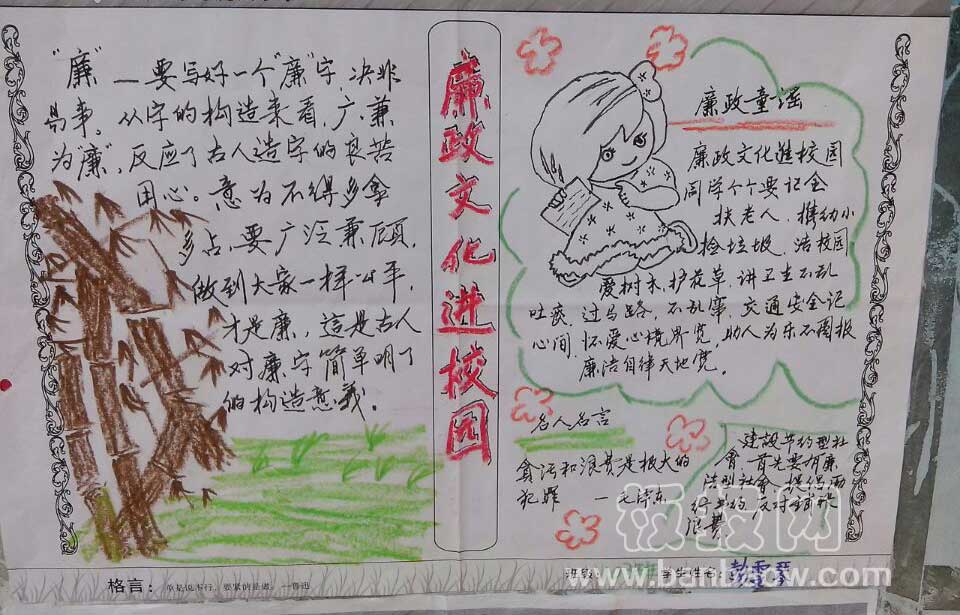 "廉"—要写好一个"廉"字 决非
易事。从字的构造来看，广、兼
为"廉"，反应了古人造字的良苦
用心。意为不得多拿
多占，要广泛兼顾，
做到大家一样公平，
才是廉，這是古人
对廉字简单明了
的构造意義。
廉政文化进校园
廉政童谣
廉政文化进校园
同学个个要记全
扶老人，携幼小
捡垃圾，洁校园
爱树木，护花草，讲卫生不乱
吐痰，过马路，不乱窜，交通安全记
心间，怀爱心境界宽，助人为乐不图报
廉洁自律天地宽。
名人名言
貪污和浪费是极大的
犯罪 —毛泽东
建設节约型社
會，首先要有廉
洁型社会，提倡
节约，反对
浪费
格言：
鲁迅
班级：
学生姓名：
彭雪
饭报网
www.banbaow.com